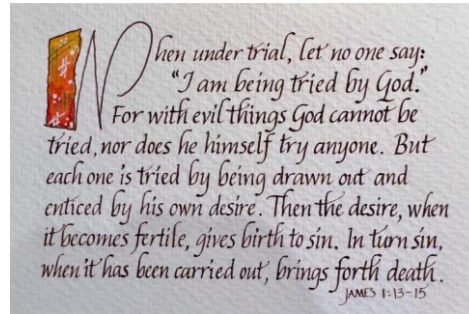 When under trial, let no one say:
"I am being tried by God."
For with evil things God cannot be
tried, nor does he himself try anyone. But
each one is tried by being drawn out and
enticed by his own desire. Then the desire, when
it becomes fertile, gives birth to sin. In turn sin,
when it has been carried out, brings forth death.
JAMES 1:13-15